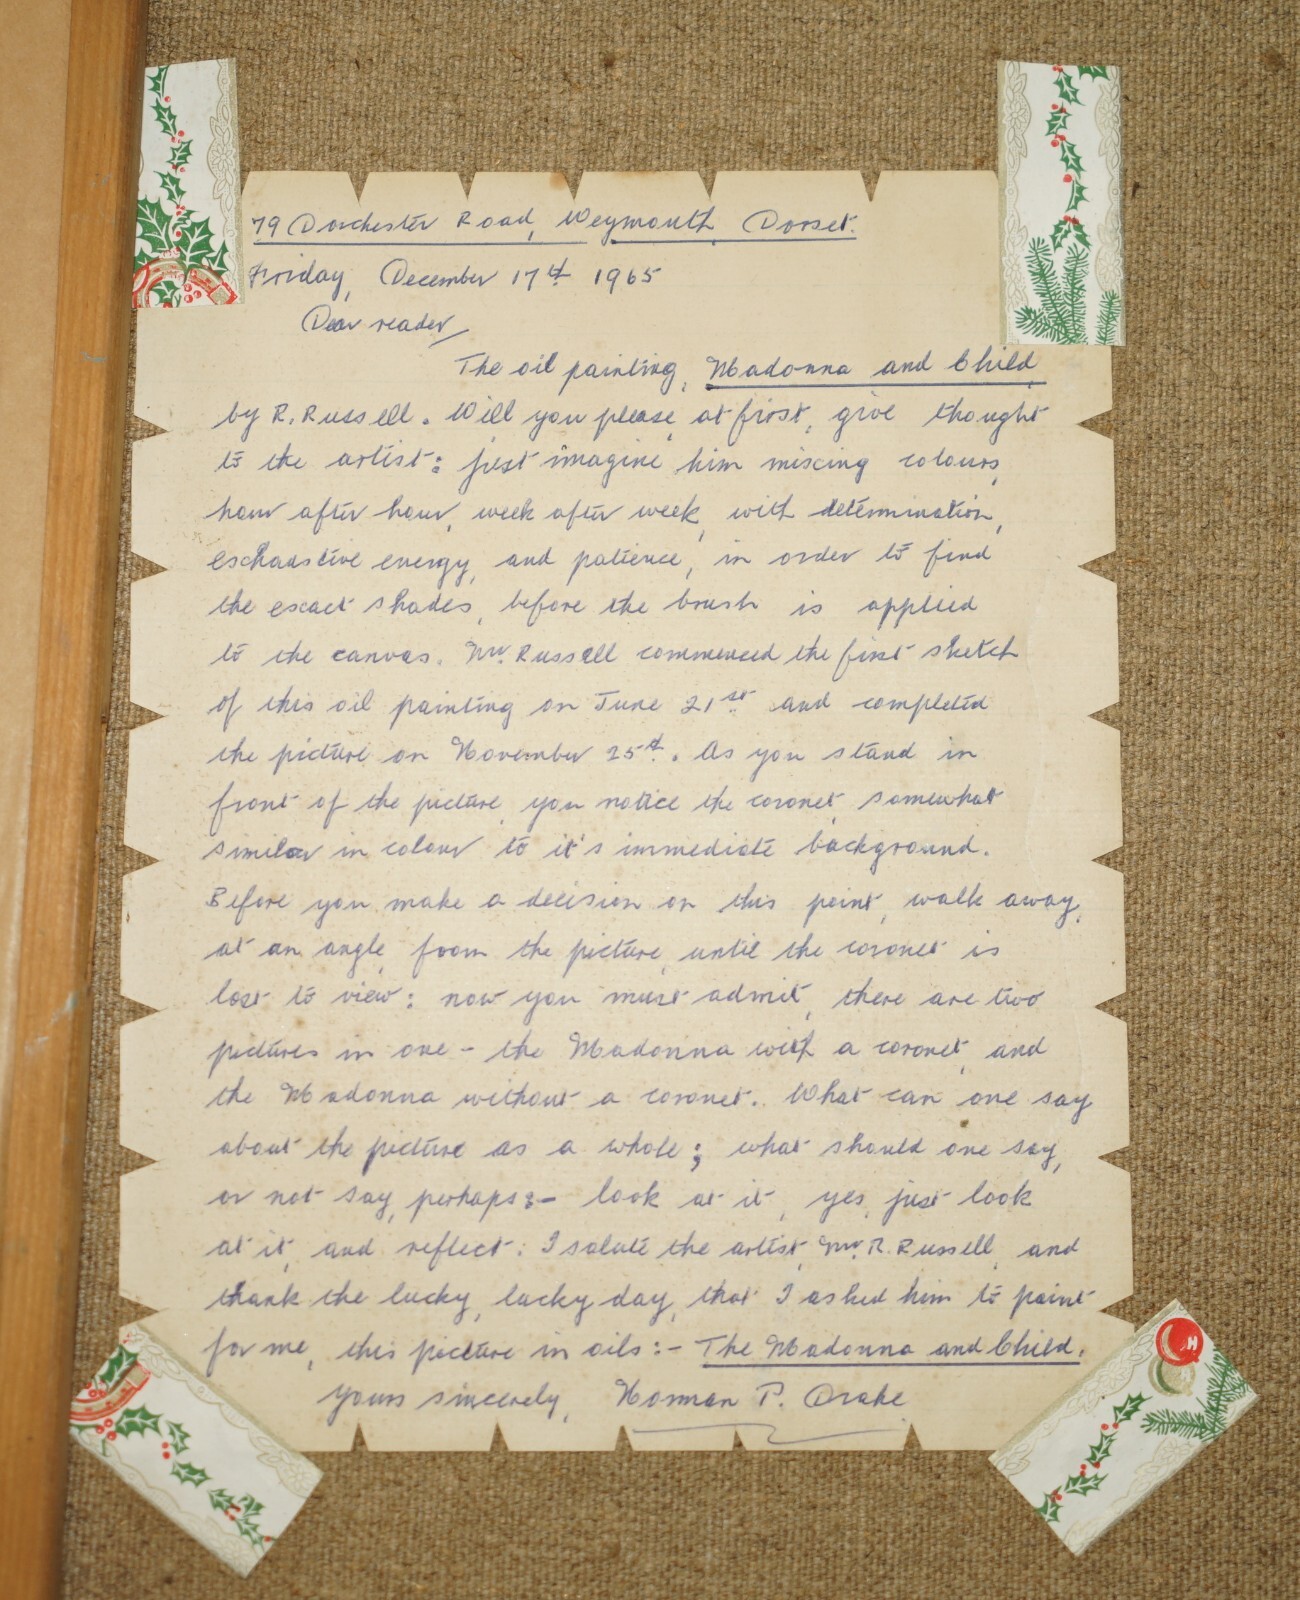 79 Dorchester Road, Weymouth, Dorset.
Friday, December 17th 1965
Dear reader,
The oil painting, Madonna and Child,
by R. Russell. Will you please, at first, give thought
to the artist: just imagine him mixing colours,
hour after hour, week after week, with determination,
exhaustive energy, and patience, in order to find
the exact shades, before the brush is applied
to the canvas. Mr. Russell commenced the first sketch
of this oil painting on June 21st and completed
the picture on November 25th. As you stand in
front of the picture, you notice the coronet, somewhat
similar in colour to it's immediate background.
Before you make a decision on this point, walk away,
at an angle, from the picture, until the coronet is
lost to view: now you must admit, there are two
pictures in one - the Madonna with a coronet, and
the Madonna without a coronet. What can one say
about the picture as a whole; what should one say,
or not say, perhaps:- look at it, yes, just look
at it, and reflect: I salute the artist, Mr. R. Russell, and
thank the lucky, lucky day, that I asked him to paint
for me, this picture in oils:- The Madonna and Child.
Yours sincerely, Norman P. Drake
H